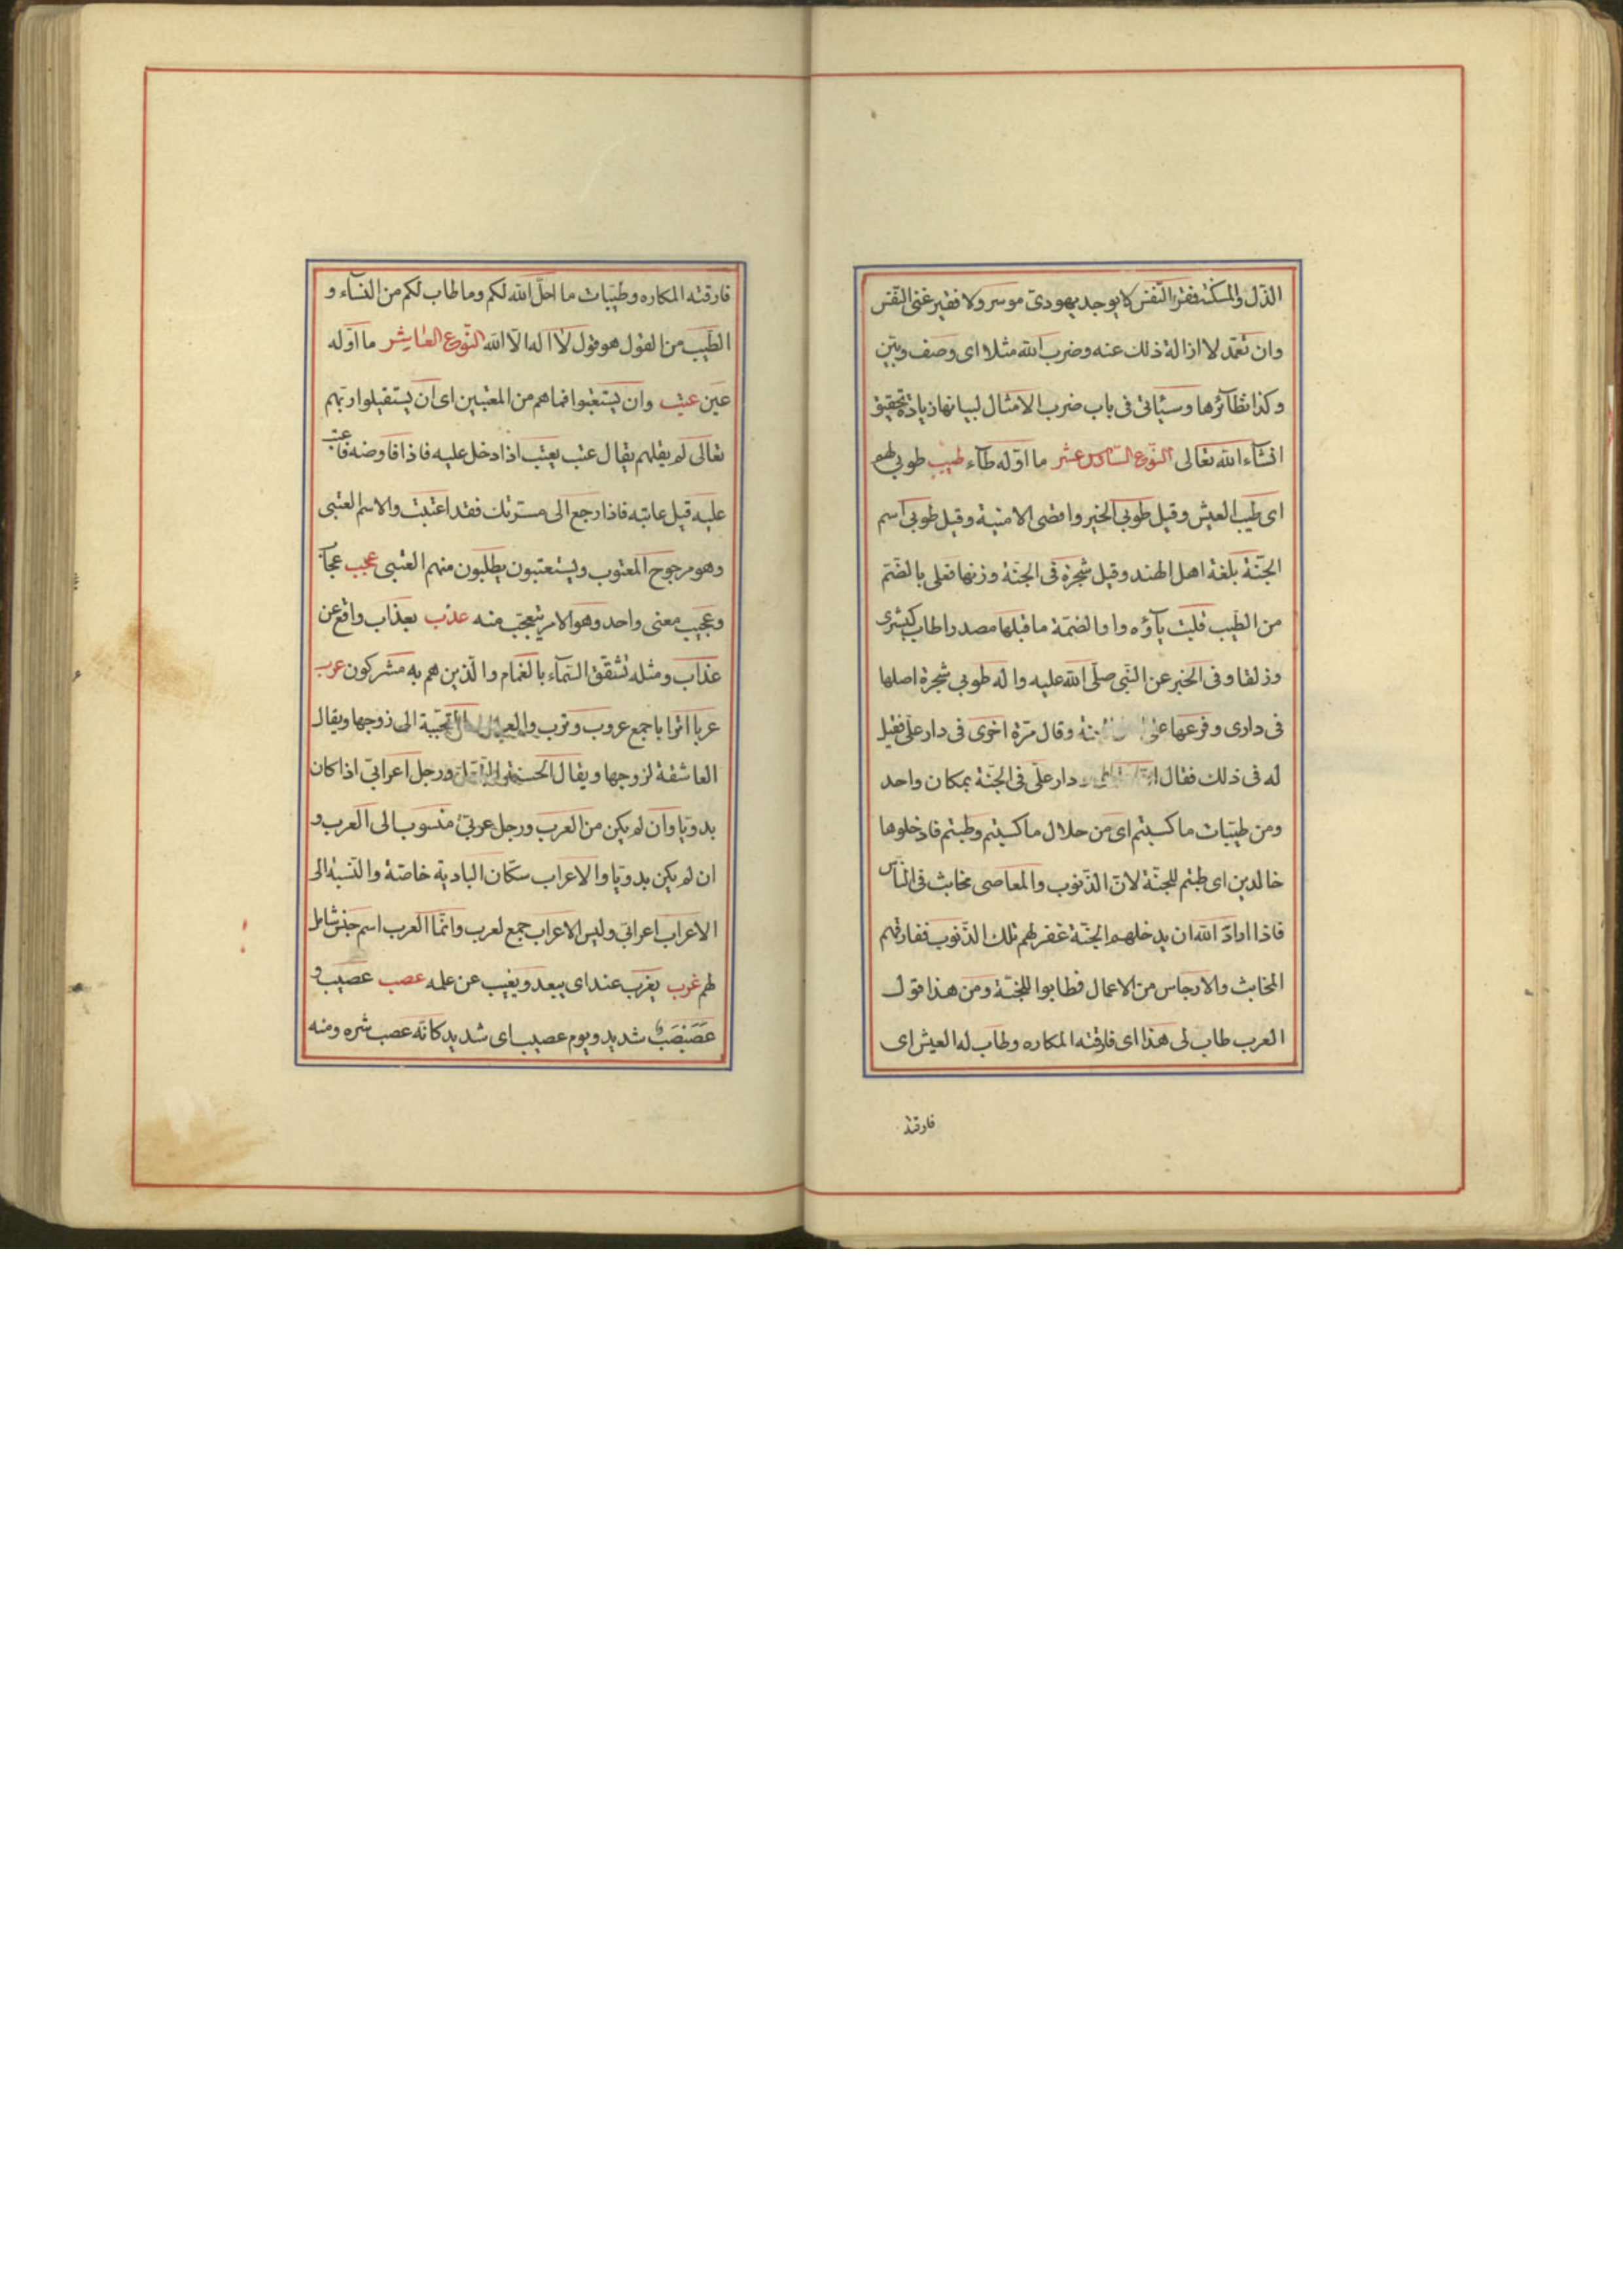 الذل والمسكنة فقر النفس لا يوجد يهودى موسر ولا فقير غنى النفس
وان تعمد لازالة ذلك عنه وضرب الله مثلا اى وصف وبين
وكذا نظآئرها وسيأتى فى باب ضرب الامثال لبيانها زيادة تحقيق
انشآء الله تعالى النوع السادس عشر ما اوّله طآء طيب طوبى لهم
اى طيب العيش وقيل طوبى الخير واقصى الامنية وقيل طوبى اسم
الجنّة بلغة اهل الهند وقيل شجرة فى الجنّة وزنها فعلى بالضّم
من الطّيب قلبت يآؤه واوا لضمّة ما قبلها مصدر لطاب كبشرى
وزلفا وفى الخبر عن النّبى صلّى الله عليه واله طوبى شجرة اصلها
فى دارى وفرعها على الجنة وقال مرّة اخرى فى دار علىّ فقيل
له فى ذلك فقال دار علّى فى الجنّة بمكان واحد
ومن طيّبات ما كسبتم اى من حلال ما كسبتم وطبتم فادخلوها
خالدين اى طبتم للجنّة لانّ الذّنوب والمعاصى مخابث فى النّاس
فاذا اراد الله ان يدخلهم الجنّة غفر لهم تلك الذّنوب ففارقتهم
المخابث والارجاس من الاعمال فطابوا للجنّة ومن هذا قول
العرب طاب لى هذا اى فارقته المكاره وطاب له العيش اى
فارقته
فارقته المكاره وطيّبات ما احلّ الله لكم وما طاب لكم من النسآء و
الطّيب من القول هو قول لا اله الّا الله النّوع العاشر ما اوّله
عين عتب وان يستعتبوا فما هم من المعتبين اى ان يستقيلوا ربّهم
تعالى لم يقلهم يقال عتب يعتب اذا دخل عليه فاذا فاوضه فا عتب
عليه قيل عاتبه فاذا رجع الى مسرتك فقد اعتبت والاسم العتبى
وهو مرجوح المعتوب ويستعتبون يطلبون منهم العتبى عجب عجآب
وعجيب معنى واحد وهو الامر يتعجّب منه عذب بعذاب واقع عن
عذاب ومثله تشقّق السّمآء بالغمام والّذين هم به مشركون عرب
عربا اترابا جمع عروب وترب والعروب المتحبّبة الى زوجها ويقال
العاشقة لزوجها ويقال الحسنة التبعّل ورجل اعرابىّ اذا كان
بدويّا وان لم يكن من العرب ورجل عربىّ منسوب الى العرب و
ان لم يكن بدويّا والاعراب سكّان البادية خاصّة والنّسبة الى
الاعراب اعرابىّ وليس الاعراب جمع لعرب وانّما العرب اسم جنس شامل
لهم غرب يغرب عند اى يبعد ويغيب عن علمه عصب عصيب و
عَصَبْصَبْ شديد ويوم عصيب اى شديد كانّه عصب شره ومنه